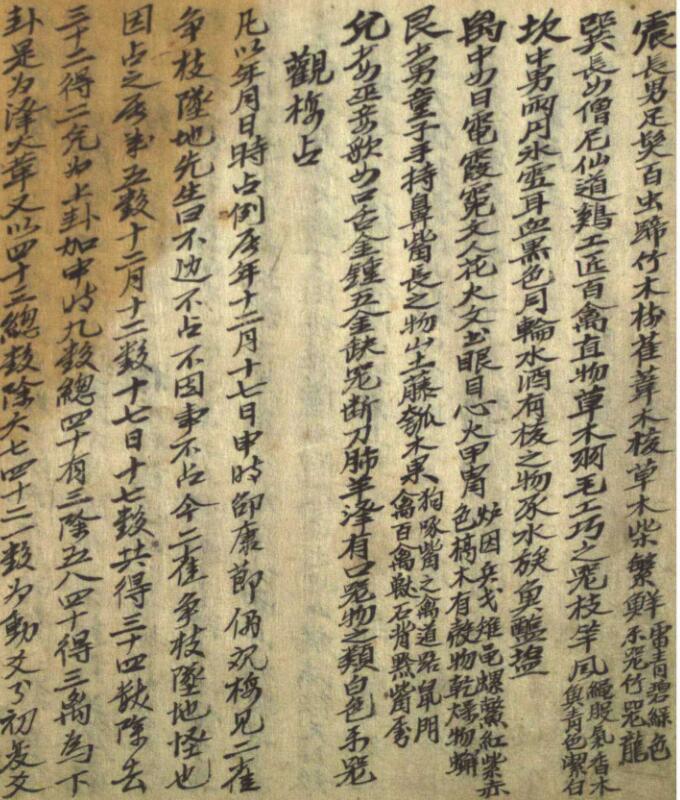 震長男足髮百虫蹄竹木核萑葦木核草木柴繁鮮雷青碧綠色
樂器竹器龍
巽長女僧尼仙道鷄工匠百禽直物草木羽毛工巧之器枝竿風繩股氣香木
臭青色潔白
坎中男雨月水雪耳血黑色弓輪水酒有核之物豕水族魚鹽
离中女日電霞霓文人花火文書眼目心火甲冑爐因兵戈雉龟螺蠏紅紫赤
色槁木有殼物乾燥物
艮少男童子手持鼻嘴長之物山土藤瓠木果狗啄嘴之禽道路鼠門
禽百禽獸石背黔嘴
兌少女巫妾歌女口舌金鍾五金缺器断刀肺羊澤有口器物之類白色樂器
觀梅占
凡以年月日時占例辰年十二月十七日申時邵康節偶觀梅見二雀
争枝墜地先生曰不動不占不因事不占今二雀争枝墜地怪也
因占之辰年五数十二月十二数十七日十七数共得三十四数除去
三十二得二兌为上卦加申時九数總四十有三除五八四十得三离为下
卦是为澤火革又以四十三總数除六七四十二一数为動爻乃初爻